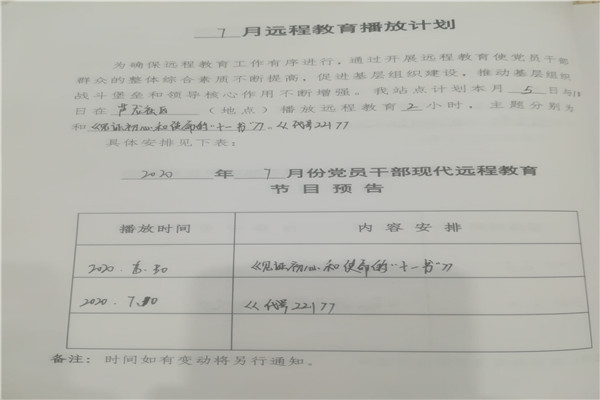 7 月远程教育播放计划
为确保远程教育工作有序进行，通过开展远程教育使党员干部
群众的整体综合素质不断提高，促进基层组织建设，推动基层组织
战斗堡垒和领导核心作用不断增强。我站点计划本月 5 日与
日在（地点）播放远程教育 2 小时，主题分别为
和《见证初心和使命的"十一书"》《代号221》
具体安排见下表：
2020 年 7 月份党员干部现代远程教育
节目预告
播放时间 内容安排
2020.6.30 《见证初心和使命的"十一书"》
2020.7.30 《代号221》
备注：时间如有变动将另行通知。